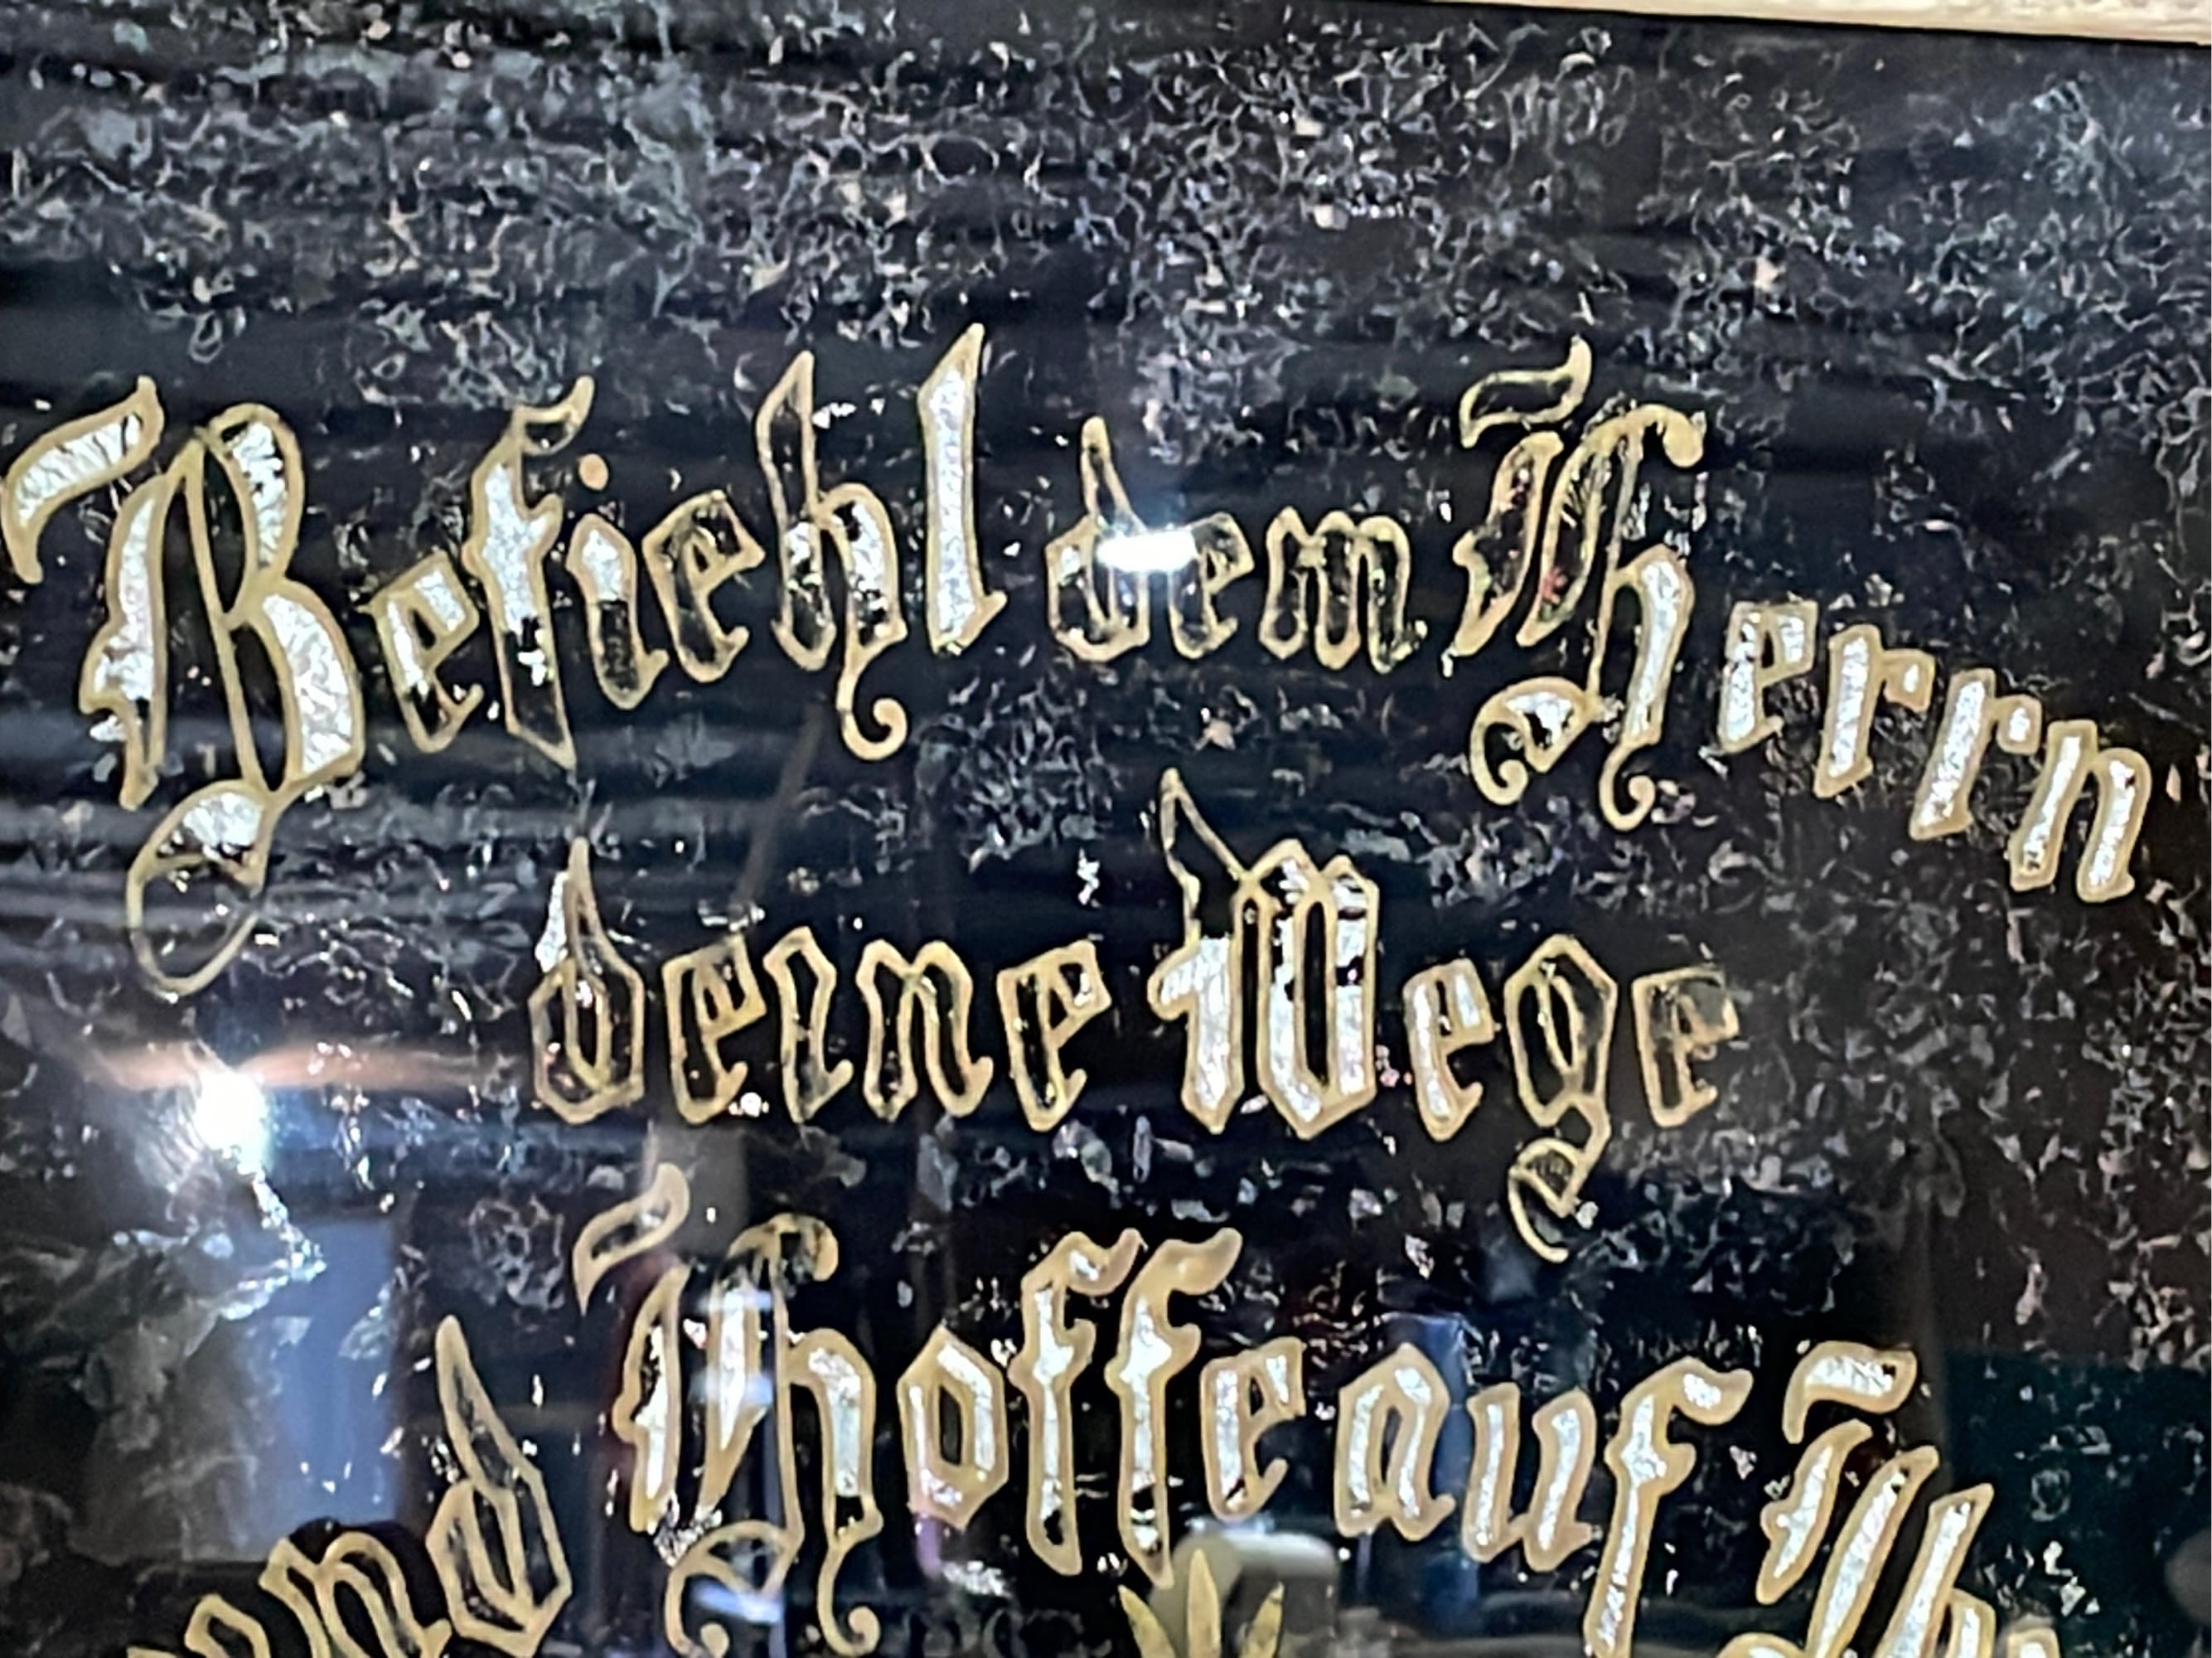 Befiehl dem Herrn
deine Wege
und Hoffe auf